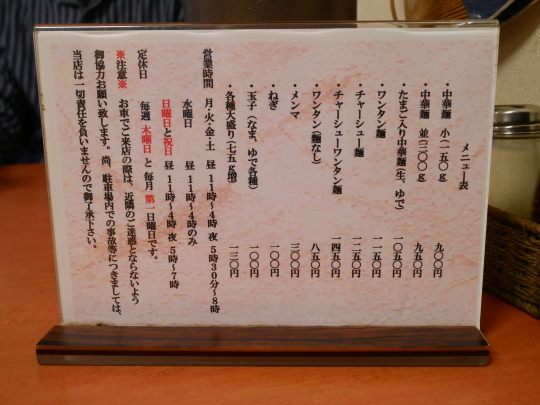 メニュー表
・中華麺 小(一五〇g) 九〇〇円
・中華麺 並(二〇〇g) 九五〇円
・たまご入り中華麺(生、ゆで) 一〇五〇円
・ワンタン麺 一一五〇円
・チャーシュー麺 一二五〇円
・チャーシューワンタン麺 一四五〇円
・ワンタン(麺なし) 八五〇円
・メンマ 三〇〇円
・ねぎ 一〇〇円
・玉子(なま、ゆで各種) 一〇〇円
・各種大盛り(七五g増) 一三〇円
営業時間 月・火・金・土 昼 11時~4時 夜 5時30分~8時
水曜日 昼 11時~4時のみ
日曜日と祝日 昼 11時~4時 夜 5時~7時
定休日 毎週 木曜日 と 毎月 第一日曜日です。
※注意※ お車でご来店の際は、近隣のご迷惑とならないよう
御協力お願い致します。尚、駐車場内での事故等につきましては、
当店は一切責任を負いませんので御了承下さい。